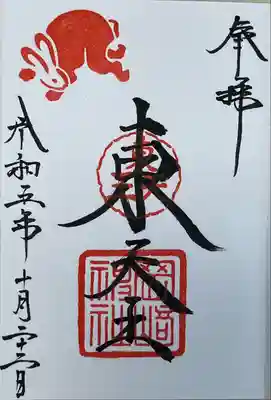 奉拝
東天王
岡崎
神社
令和五年十月二十二日